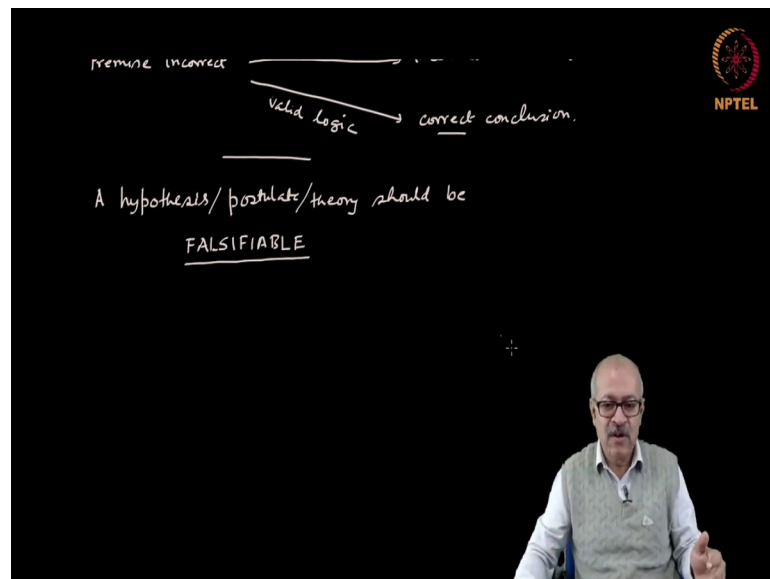 premise incorrect
NPTEL
valid logic
correct conclusion.
A hypothesis/postulate/theory should be
FALSIFIABLE